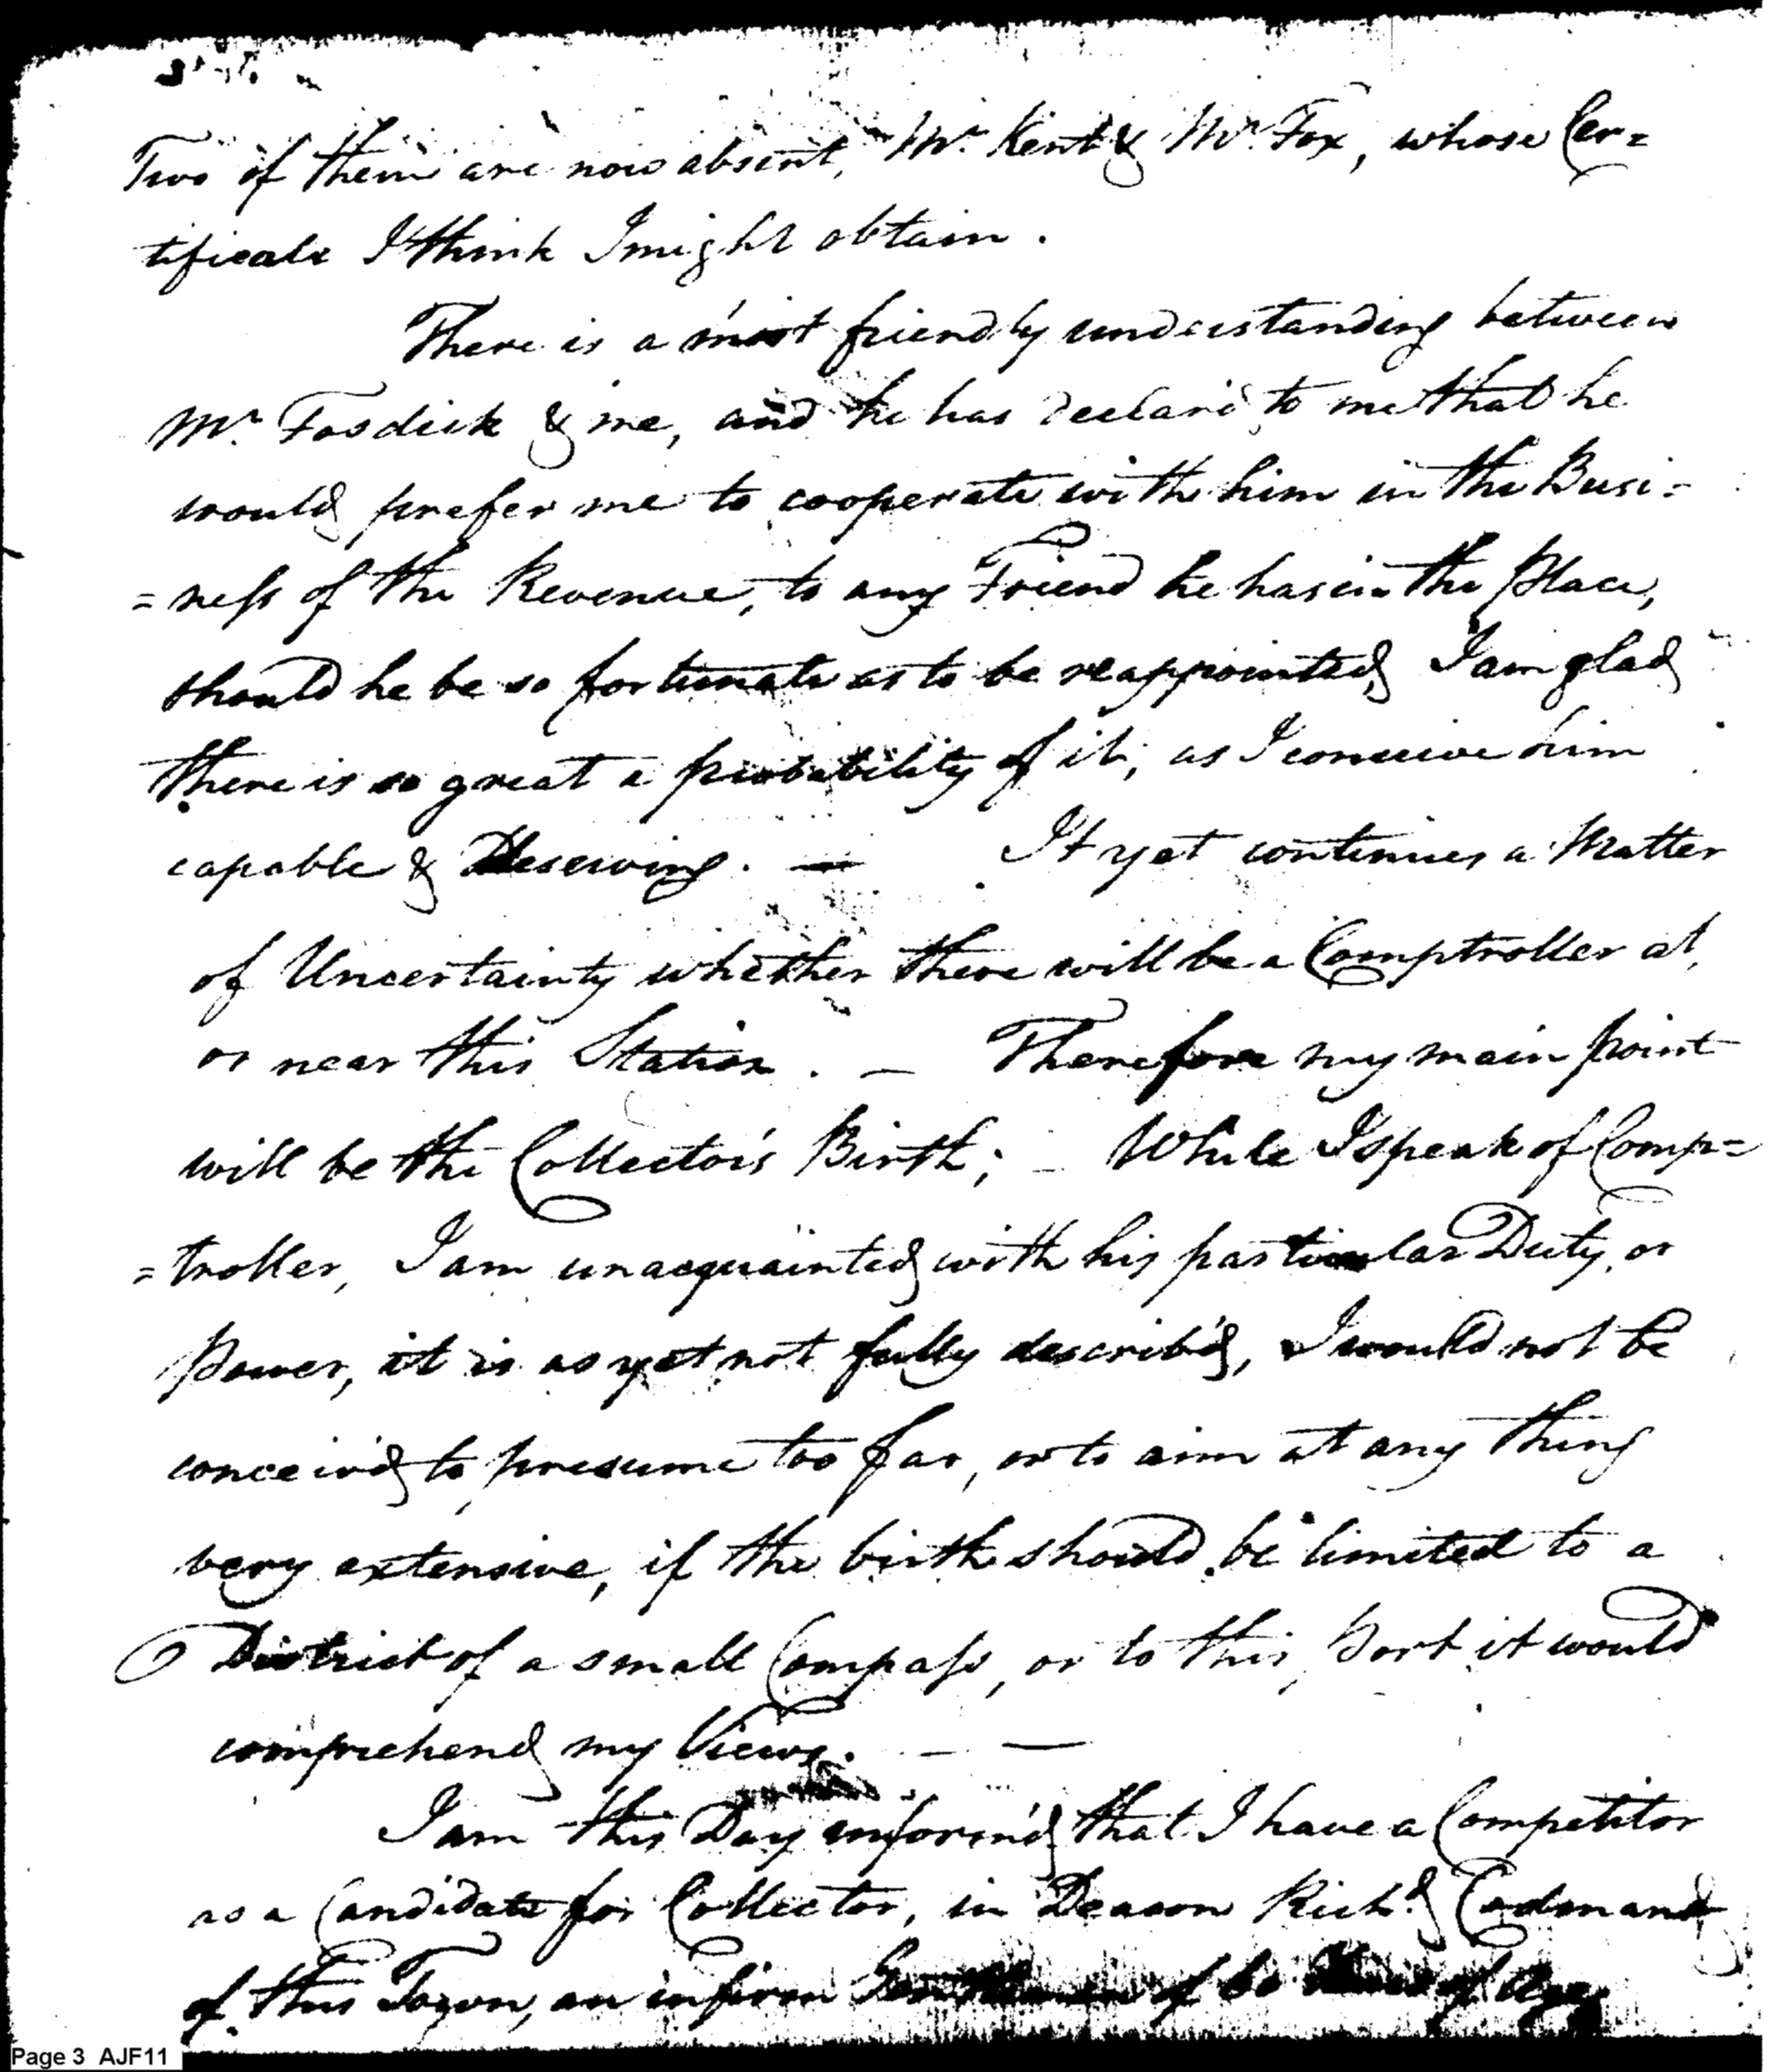 3
Two of them are now absent, Mr. Kent & Mr. Fox, whose Cer=
tificate I think I might obtain.
There is a most friendly understanding between
Mr. Fosdick & me, and he has declar'd to me that he
would prefer me to cooperate with him in the Busi=
=ness of the Revenue, to any Friend he has in the Place,
should he be so fortunate as to be reappointed, I am glad
there is so great a probability of it, as I conceive him
capable & Deserving. — It yet continues a Matter
of Uncertainty whether there will be a Comptroller at,
or near this Station. — Therefore my main point
will be the Collector's Birth; – While I speak of Comp=
=troller, I am unacquainted with his particular Duty, or
Power, it is as yet not fully describ'd, I would not be
conceiv'd to presume too far, or to aim at any thing
very extensive, if the birth should be limited to a
District of a small Compass, or to this Port it would
comprehend my Views. — —
I am this Day inform'd that I have a Competitor
as a Candidate for Collector, in Deacon Richd. Codman
of this Town, an infirm Gentleman of 60 Years of Age
Page 3 AJF11